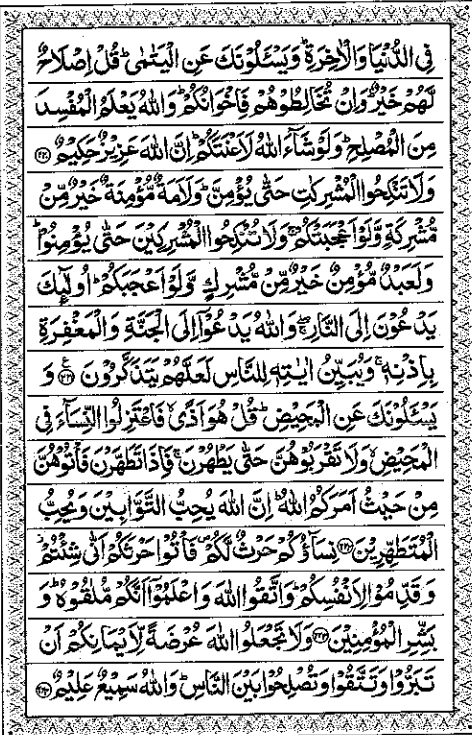 فِي الدُّنْيَا وَالْاٰخِرَةِ ؕ وَيَسْـَٔلُوْنَكَ عَنِ الْيَتٰمٰى ؕ قُلْ اِصْلَاحٌ
لَّهُمْ خَيْرٌ ؕ وَاِنْ تُخَالِطُوْهُمْ فَاِخْوَانُكُمْ ؕ وَاللّٰهُ يَعْلَمُ الْمُفْسِدَ
مِنَ الْمُصْلِحِ ؕ وَلَوْ شَآءَ اللّٰهُ لَاَعْنَتَكُمْ ؕ اِنَّ اللّٰهَ عَزِيْزٌ حَكِيْمٌ ﴿۲۲۰﴾
وَلَا تَنْكِحُوا الْمُشْرِكٰتِ حَتّٰى يُؤْمِنَّ ؕ وَلَاَمَةٌ مُّؤْمِنَةٌ خَيْرٌ مِّنْ
مُّشْرِكَةٍ وَّلَوْ اَعْجَبَتْكُمْ ۚ وَلَا تُنْكِحُوا الْمُشْرِكِيْنَ حَتّٰى يُؤْمِنُوْا ؕ
وَلَعَبْدٌ مُّؤْمِنٌ خَيْرٌ مِّنْ مُّشْرِكٍ وَّلَوْ اَعْجَبَكُمْ ؕ اُولٰٓئِكَ
يَدْعُوْنَ اِلَى النَّارِ ۖۚ وَاللّٰهُ يَدْعُوْٓا اِلَى الْجَنَّةِ وَالْمَغْفِرَةِ
بِاِذْنِهٖ ۚ وَيُبَيِّنُ اٰيٰتِهٖ لِلنَّاسِ لَعَلَّهُمْ يَتَذَكَّرُوْنَ ﴿۲۲۱﴾ ع وَ
يَسْـَٔلُوْنَكَ عَنِ الْمَحِيْضِ ؕ قُلْ هُوَ اَذًى ۙ فَاعْتَزِلُوا النِّسَآءَ فِى
الْمَحِيْضِ ۙ وَلَا تَقْرَبُوْهُنَّ حَتّٰى يَطْهُرْنَ ۚ فَاِذَا تَطَهَّرْنَ فَاْتُوْهُنَّ
مِنْ حَيْثُ اَمَرَكُمُ اللّٰهُ ؕ اِنَّ اللّٰهَ يُحِبُّ التَّوَّابِيْنَ وَيُحِبُّ
الْمُتَطَهِّرِيْنَ ﴿۲۲۲﴾ نِسَآؤُكُمْ حَرْثٌ لَّكُمْ ۪ فَاْتُوْا حَرْثَكُمْ اَنّٰى شِئْتُمْ ؗ
وَقَدِّمُوْا لِاَنْفُسِكُمْ ؕ وَاتَّقُوا اللّٰهَ وَاعْلَمُوْٓا اَنَّكُمْ مُّلٰقُوْهُ ؕ وَ
بَشِّرِ الْمُؤْمِنِيْنَ ﴿۲۲۳﴾ وَلَا تَجْعَلُوا اللّٰهَ عُرْضَةً لِّاَيْمَانِكُمْ اَنْ
تَبَرُّوْا وَتَتَّقُوْا وَتُصْلِحُوْا بَيْنَ النَّاسِ ؕ وَاللّٰهُ سَمِيْعٌ عَلِيْمٌ ﴿۲۲۴﴾